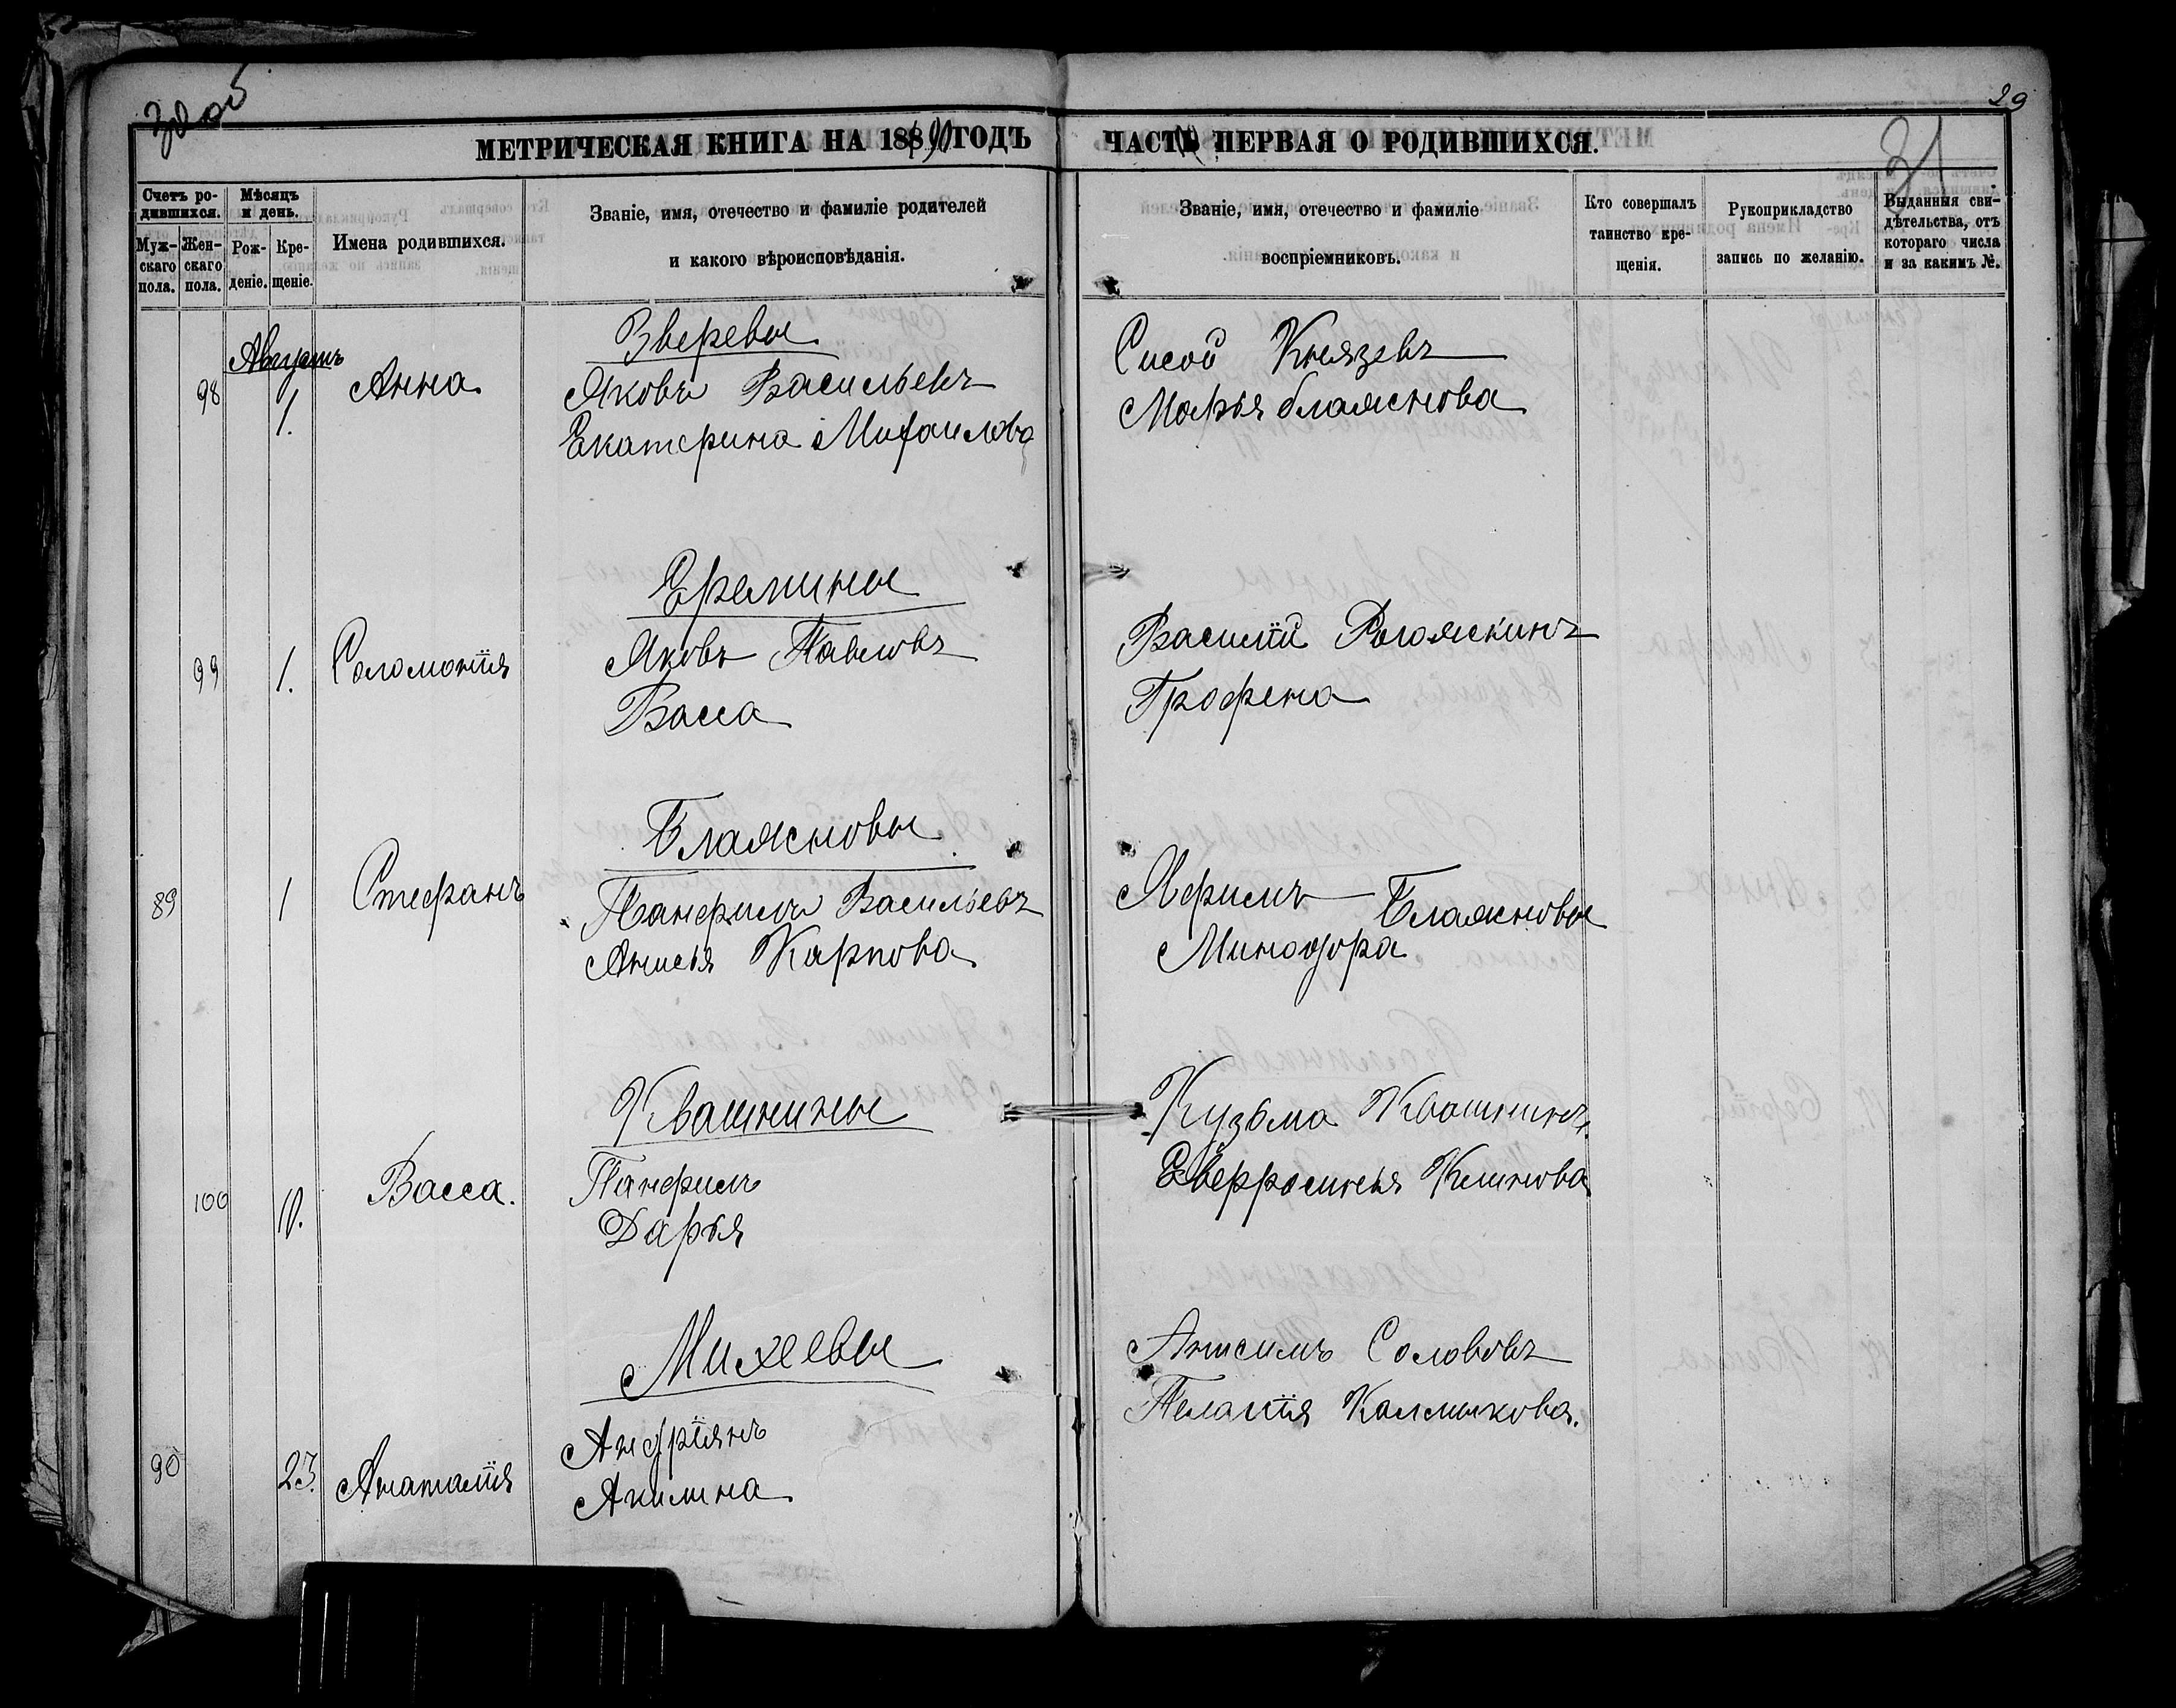 30 об
29
МЕТРИЧЕСКАЯ КНИГА НА 1890 ГОДЪ
ЧАСТЬ ПЕРВАЯ О РОДИВШИХСЯ.
31
Счетъ ро-
дившихся.
Муж-
скаго
пола.
Жен-
скаго
пола.
Мѣсяцъ
и день.
Рож-
деніе.
Кре-
щеніе.
Имена родившихся.
Званіе, имя, отечество и фамиліе родителей
и какого вѣроисповѣданія.
Званіе, имя, отечество и фамиліе
воспріемниковъ.
Кто совершалъ
таинство кре-
щенія.
Рукоприкладство
запись по желанію.
Выданныя сви-
дѣтельства, отъ
котораго числа
и за какимъ №.
Августъ
98 1. Анна
Зверевы
Яковъ Васильевъ
Екатерина Михаилова
Сисой Князевъ
Марья Блаженова
99 1. Соломонія
Еремины
Яковъ Павловъ
Васса
Василій Рогожкинъ
Грофена
89 1 Стефанъ
Блаженовы
Панфилъ Васильевъ
Анисья Карпова
Яфимъ Блаженовы
Минодора
100 10. Васса.
Квашнины
Панфилъ
Дарья
Кузьма Квашнинъ.
Климова
90 23. Анаталія
Михеевы
Андріянъ
Акилина
Анисимъ Солововъ
Пелагія Калмыкова.